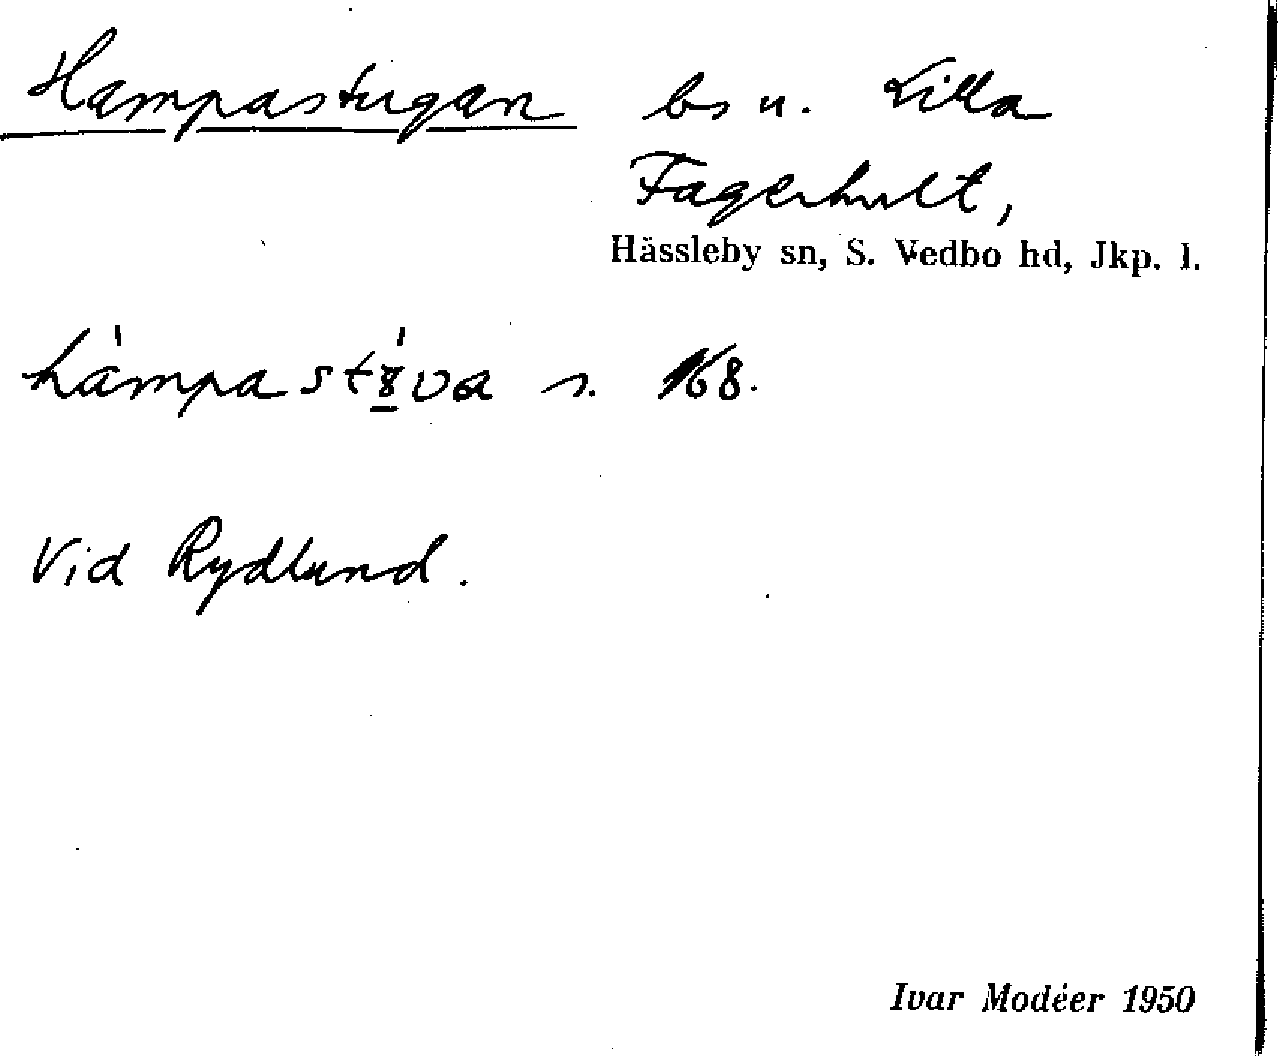 Hampastugan bs u. Lilla
Fagerhult,
Hässleby sn, S. Vedbo hd, Jkp. l.
hàmpastu̠̇va s. 168.
Vid Rydlund.
Ivar Modéer 1950